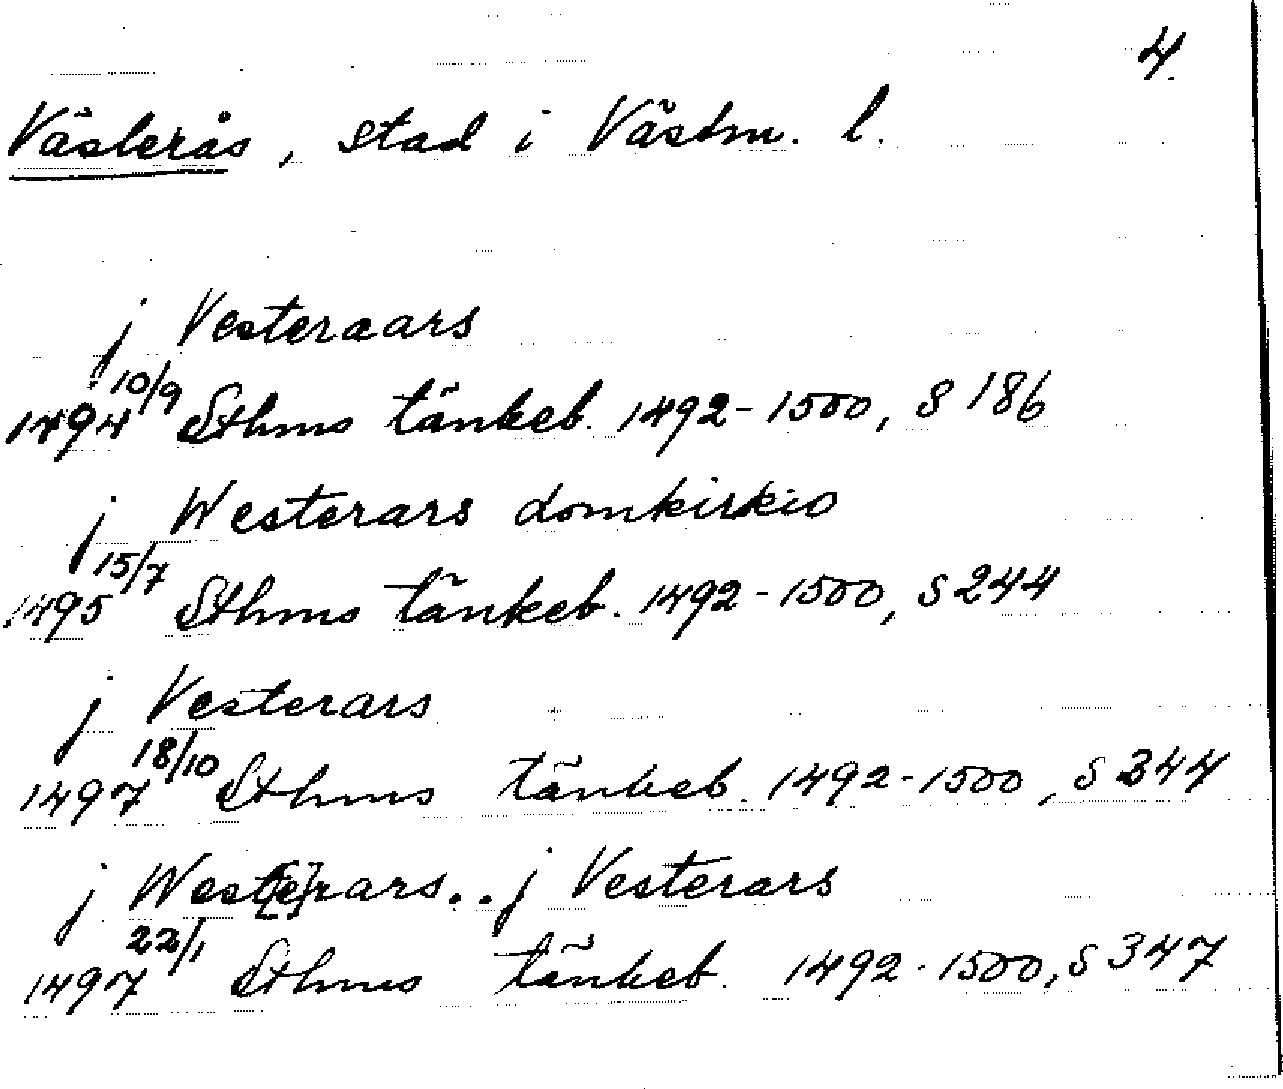 4.
Västerås, stad i Västm. l.
j Vesteraars
1494 10/9 Sthms tänkeb. 1492-1500, s 186
j Westerars domkirkio
1495 15/7 Sthms tänkeb. 1492-1500, s 244
j Vesterars
1497 18/10 Sthms tänkeb. 1492-1500, s 344
j West[e]rars.. j Vesterars
1497 22/1 Sthms tänkeb. 1492-1500, s 347